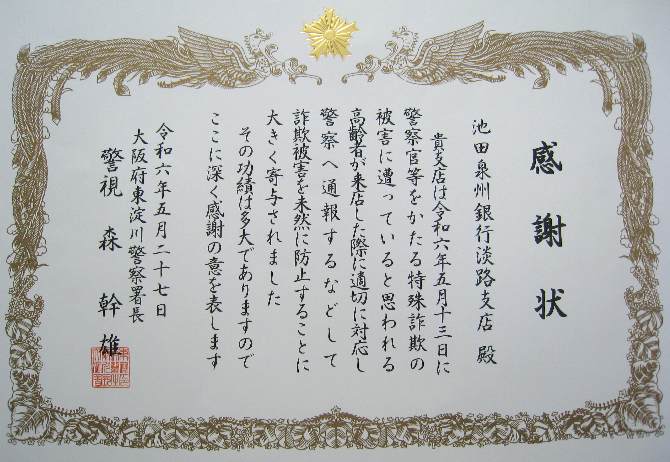 感謝状
池田泉州銀行淡路支店 殿
貴支店は令和六年五月十三日に
警察官等をかたる特殊詐欺の
被害に遭っていると思われる
高齢者が来店した際に適切に対応し
警察へ通報するなどして
詐欺被害を未然に防止することに
大きく寄与されました
その功績は多大でありますので
ここに深く感謝の意を表します
令和六年五月二十七日
大阪府東淀川警察署長
警視 森 幹雄